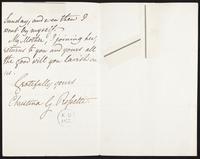 Sunday, and even then I
went by myself.
My Mother & I joining her,
returns to you and yours all
the good will you lavish on
us.
Gratefully yours
Christina G. Rossetti